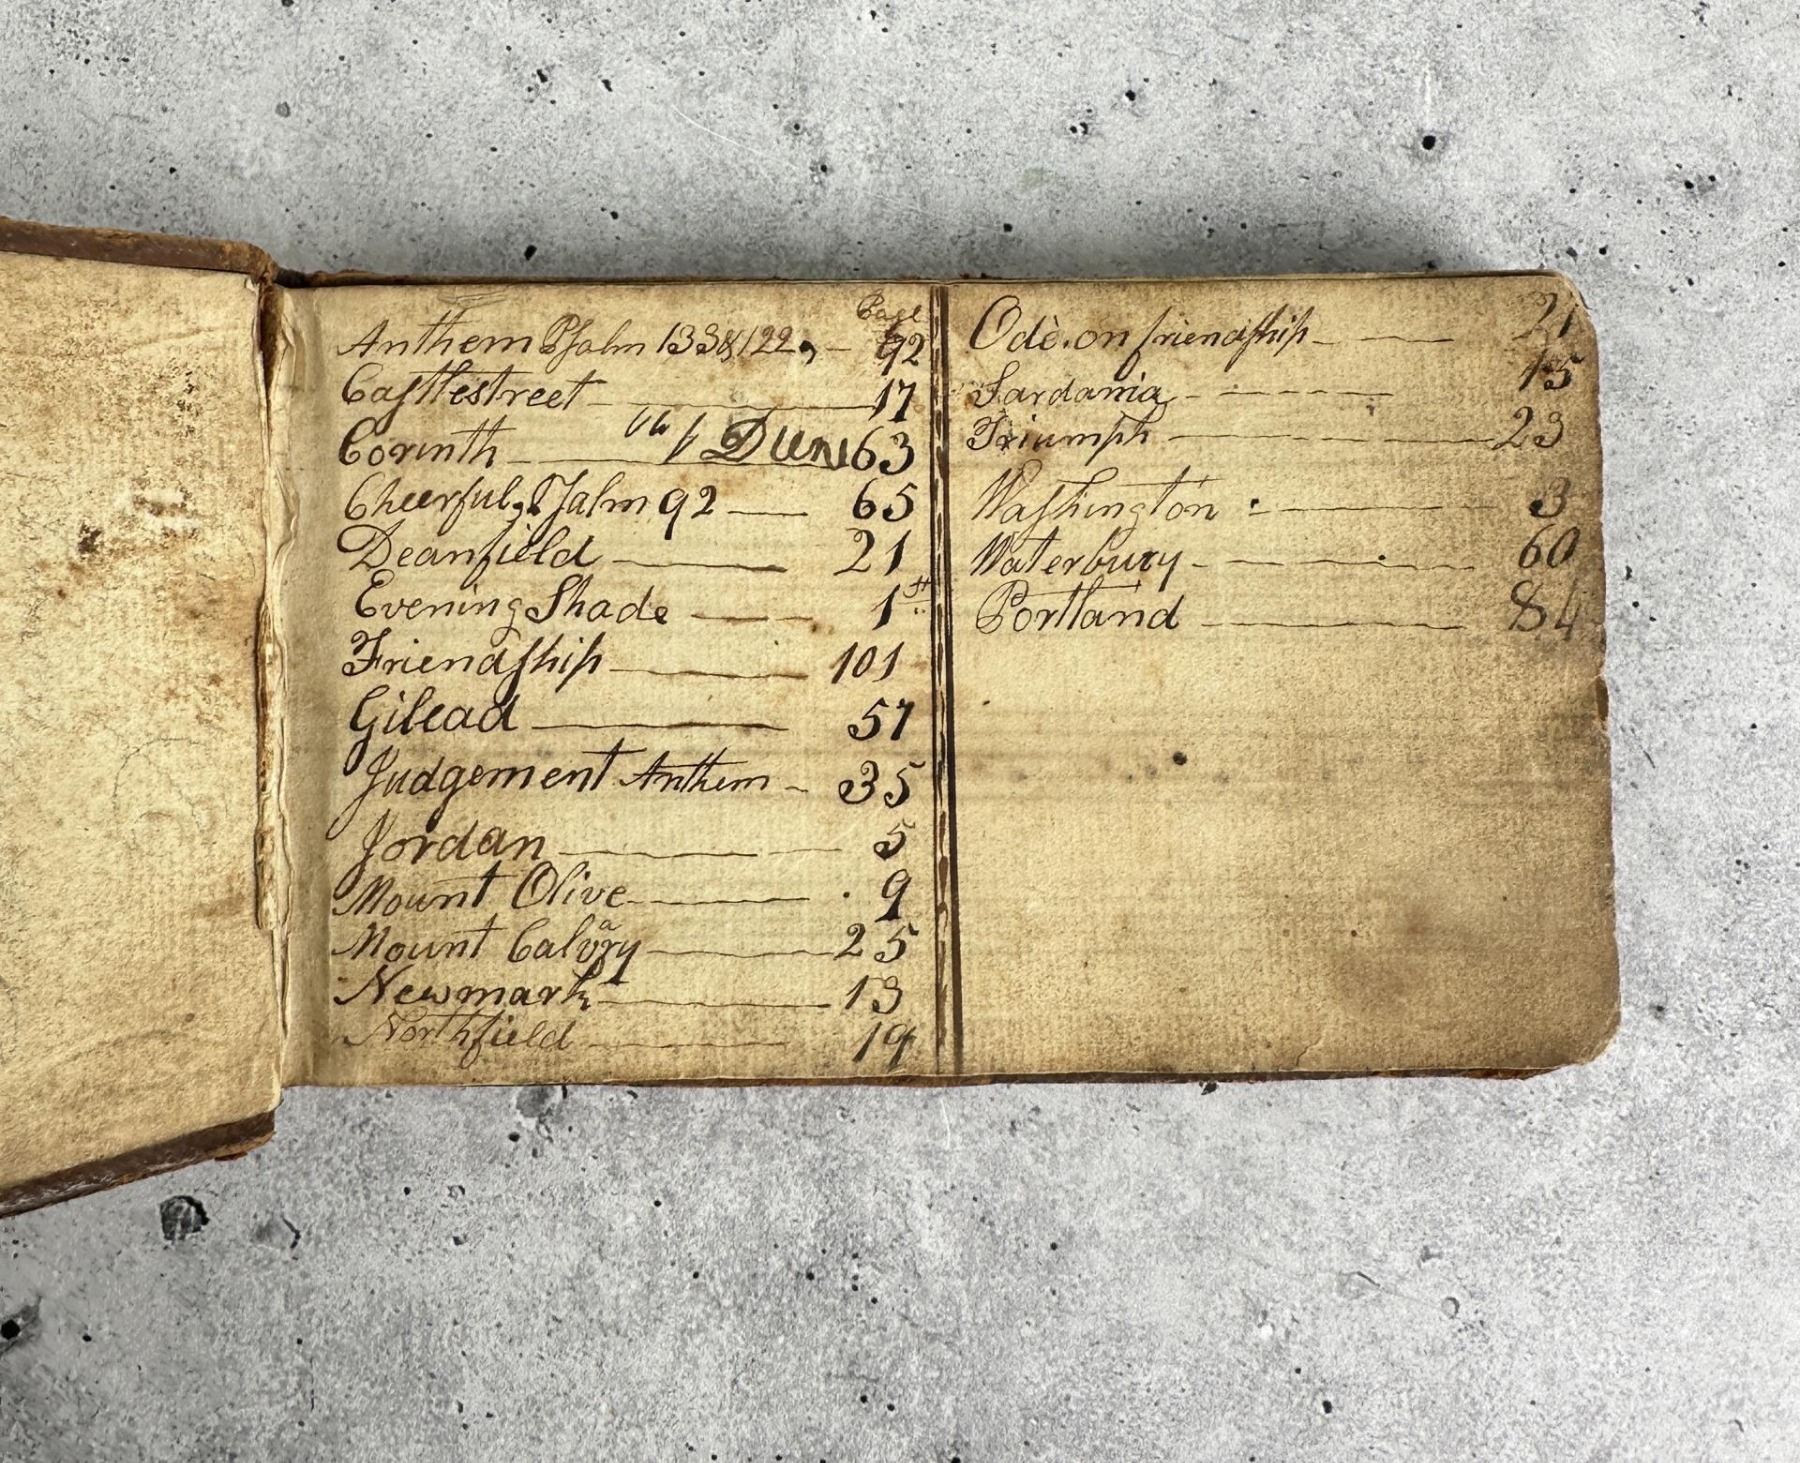 Page
Anthem Pſalm 133 & 122, – 92
Caſtlestreet 17
Corinth 63
Cheerful, Pſalm 92 — 65
Deanfield — 21
Evening Shade — 1st
Friendſhip — 101
Gilead — 57
Judgement Anthem – 35
Jordan — 5
Mount Olive — 9
Mount Calvary — 25
Newmark — 13
Northfield — 19
Ode on friendſhip — 21
Sardania — 15
Triumph — 23
Waſhington — 3
Waterbury — 60
Portland — 84